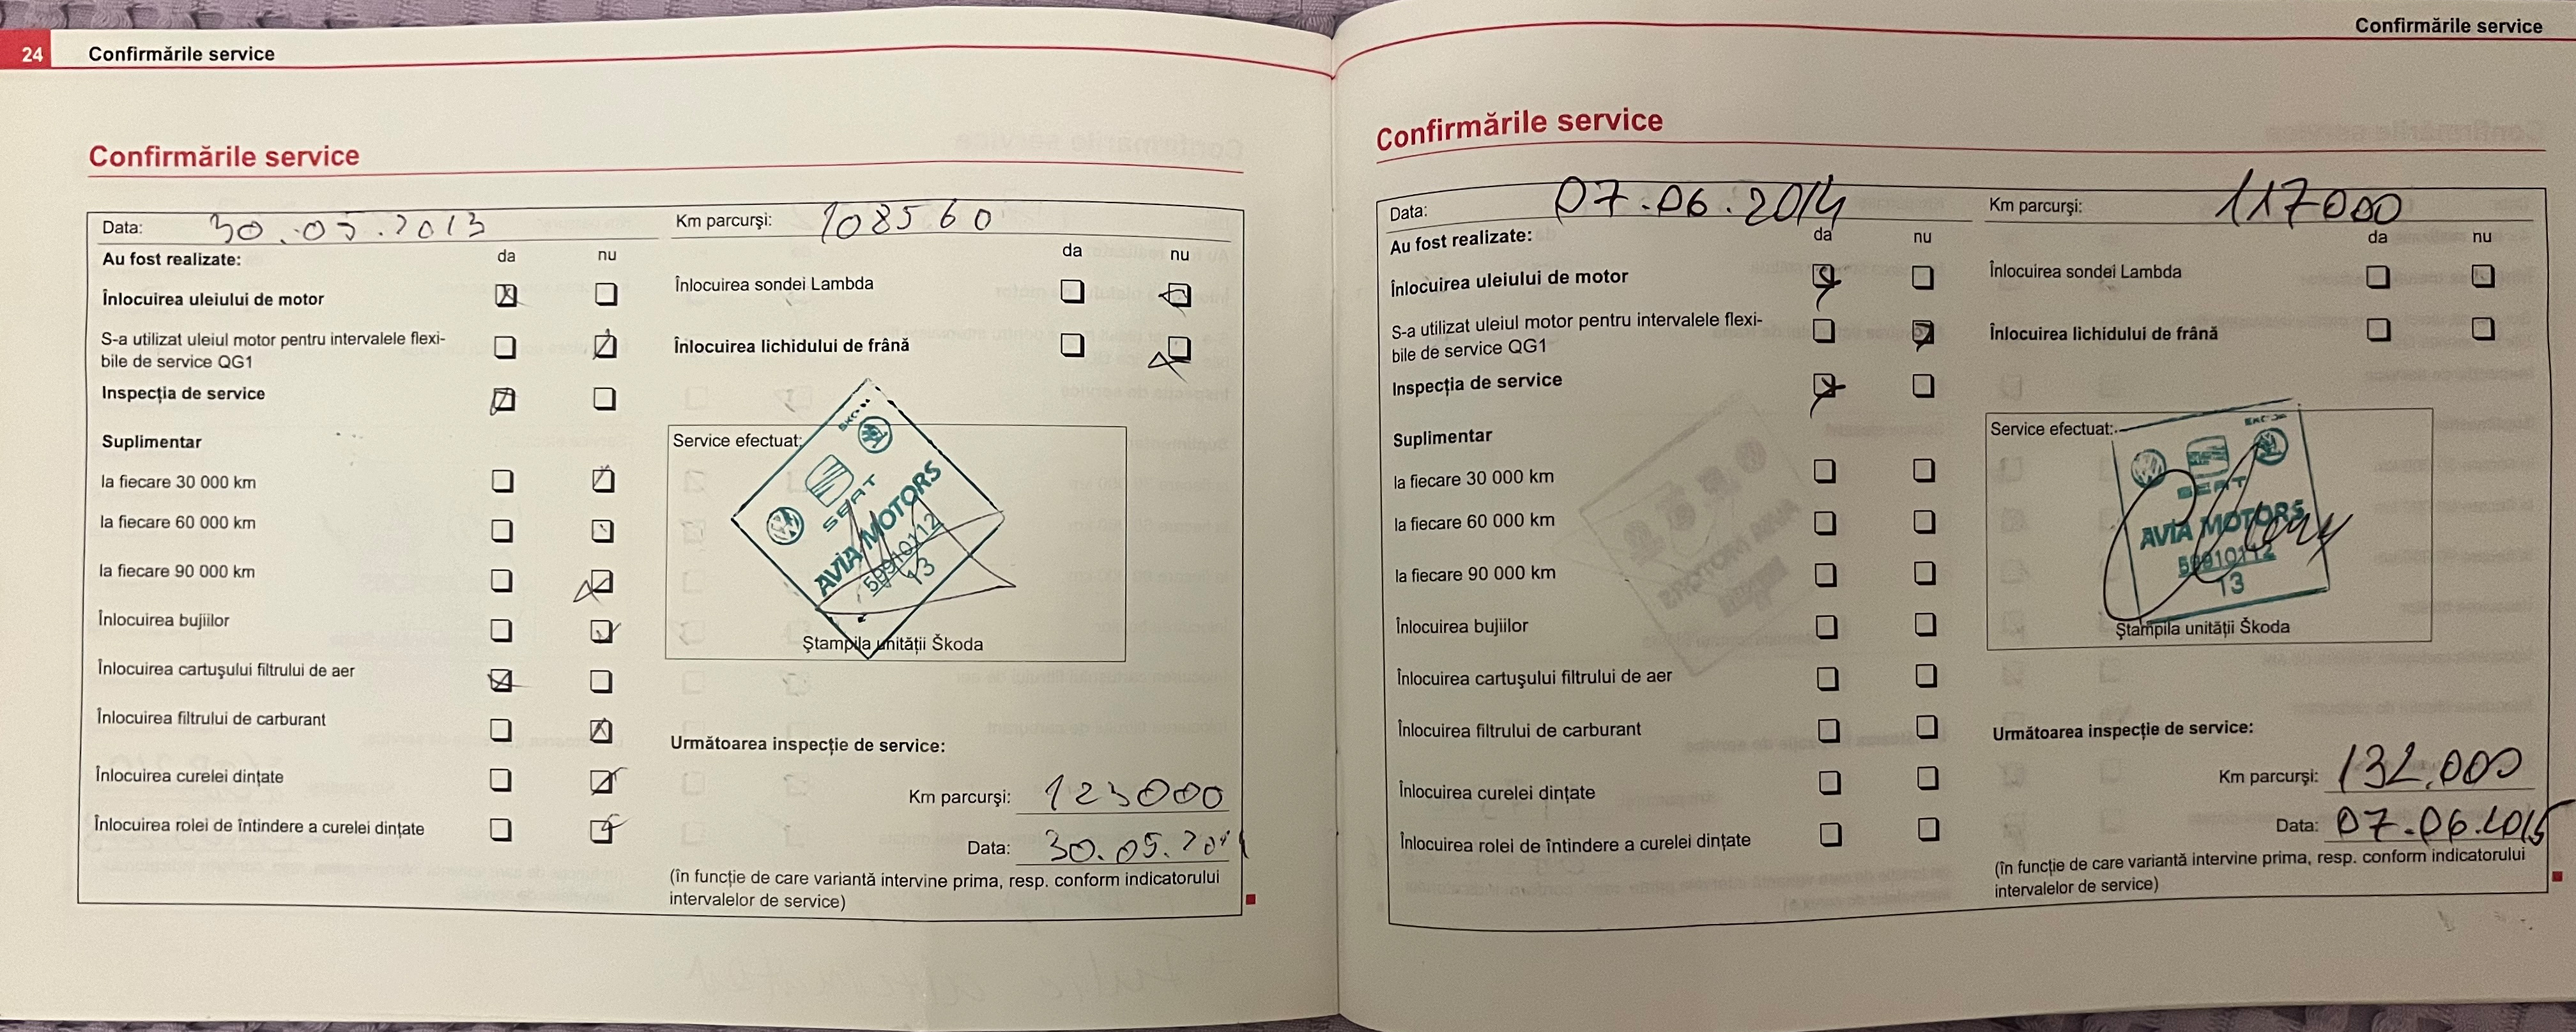 24 Confirmările service
Confirmările service
Data: 30.05.2013 Km parcurşi: 108560
Au fost realizate: da nu da nu
Înlocuirea uleiului de motor
Înlocuirea sondei Lambda
S-a utilizat uleiul motor pentru intervalele flexi-
bile de service QG1
Înlocuirea lichidului de frână
Inspecţia de service
Suplimentar
la fiecare 30 000 km
la fiecare 60 000 km
la fiecare 90 000 km
Înlocuirea bujiilor
Înlocuirea cartuşului filtrului de aer
Înlocuirea filtrului de carburant
Înlocuirea curelei dinţate
Înlocuirea rolei de întindere a curelei dinţate
Service efectuat:
SEAT
AVIA MOTORS
59910112
13
Ştampila unităţii Škoda
Următoarea inspecţie de service:
Km parcurşi: 123000
Data: 30.05.201
(în funcţie de care variantă intervine prima, resp. conform indicatorului
intervalelor de service)
Confirmările service
Confirmările service
Data: 07.06.2014 Km parcurşi: 117000
Au fost realizate: da nu da nu
Înlocuirea uleiului de motor
Înlocuirea sondei Lambda
S-a utilizat uleiul motor pentru intervalele flexi-
bile de service QG1
Înlocuirea lichidului de frână
Inspecţia de service
Suplimentar
la fiecare 30 000 km
la fiecare 60 000 km
la fiecare 90 000 km
Înlocuirea bujiilor
Înlocuirea cartuşului filtrului de aer
Înlocuirea filtrului de carburant
Înlocuirea curelei dinţate
Înlocuirea rolei de întindere a curelei dinţate
Service efectuat:
SEAT
AVIA MOTORS
59910112
13
Ştampila unităţii Škoda
Următoarea inspecţie de service:
Km parcurşi: 132.000
Data: 07.06.2015
(în funcţie de care variantă intervine prima, resp. conform indicatorului
intervalelor de service)